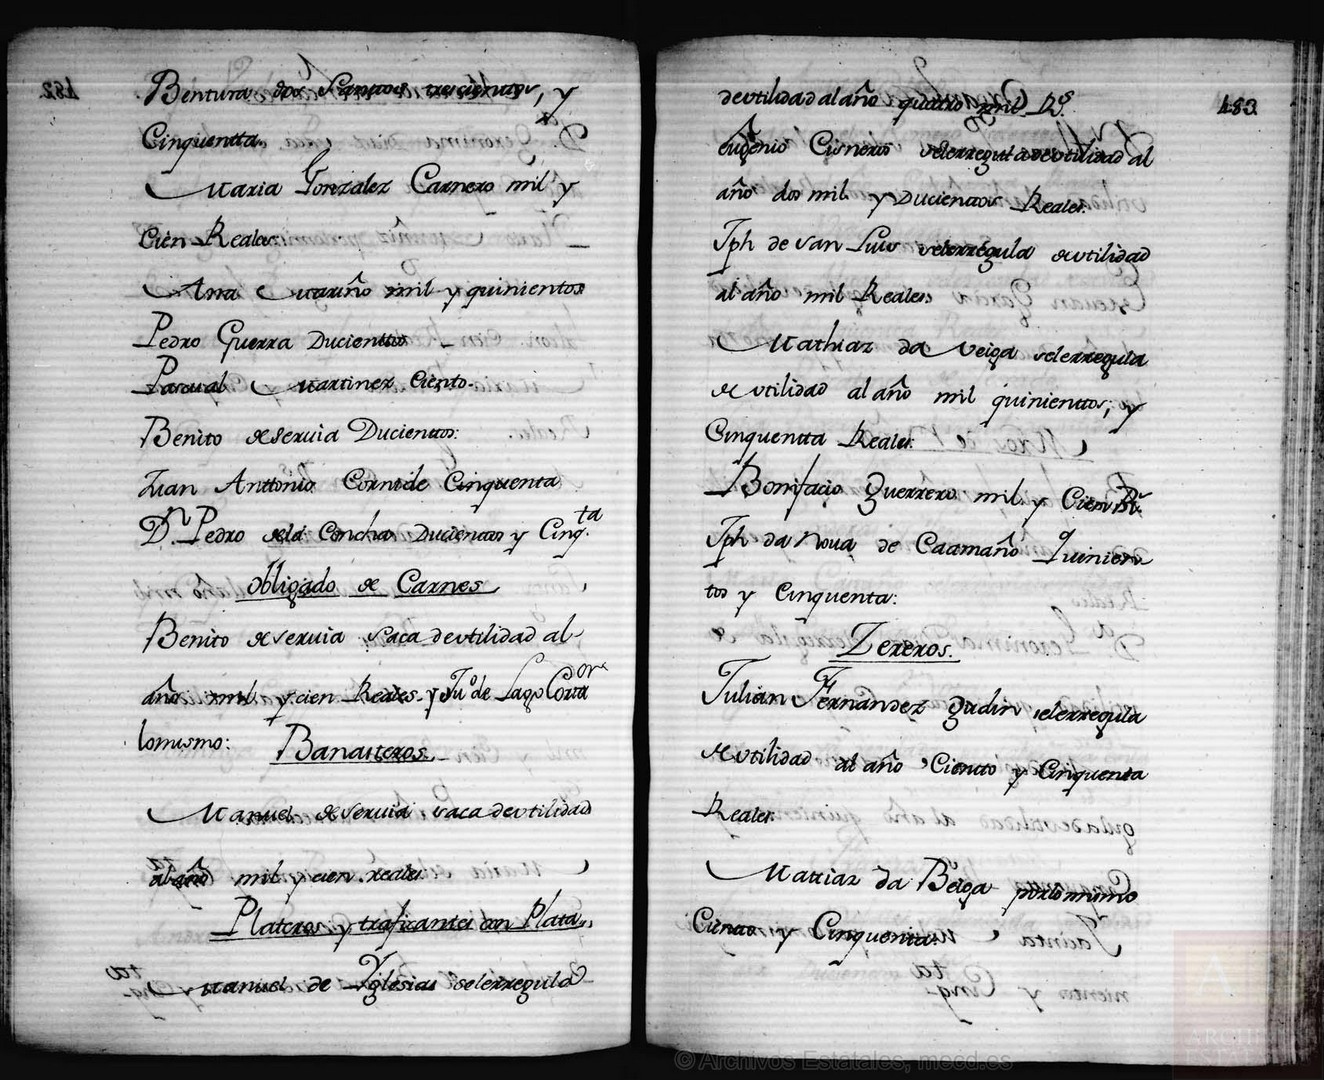 Bentura dos Santos trescientos, y
Cinquentta.
Maria Gonzalez Carnero mil y
Cien Reales
Ana Mariño mil y quinientos
Pedro Guerra Ducienttos
Pasqual Martinez Ciento.
Benito de seruia Ducienttos:
Juan Anttonio Cornide Cinquenta
Dn. Pedro dela Concha Ducientos y Cinqta.
Obligado de Carnes
Benito de seruia saca de vtilidad al
año mil y cien Reales. y Juo. de Lago Cortaor
lomismo:
Banasteros
Manuel de seruia saca de vtilidad
al año mil y cien reales
Plateros y traficantes en Plata
Manuel de Yglesias selerregula
de vtilidad al año quatro mil Rs.
Eugenio Cisneros selerregula de vtilidad al
año dos mil y Ducientos Reales.
Jph de san Luis selerregula de vtilidad
al año mil Reales
Mathias da Veiga selerregula
de vtilidad al año mil quinienttos, y
Cinquentta Reales
Bonifacio Guerrero mil y Cien Rs.
Jph da Noua de Caamaño Quinien
tos y Cinquenta:
Zereros.
Julian Fernandez Gudin selerregula
de vtilidad al año Ciento y Cinquenta
Reales
Mattias da Beiga porlomismo
Ciento y Cinquenta
483
© Archivos Estatales, mecd.es